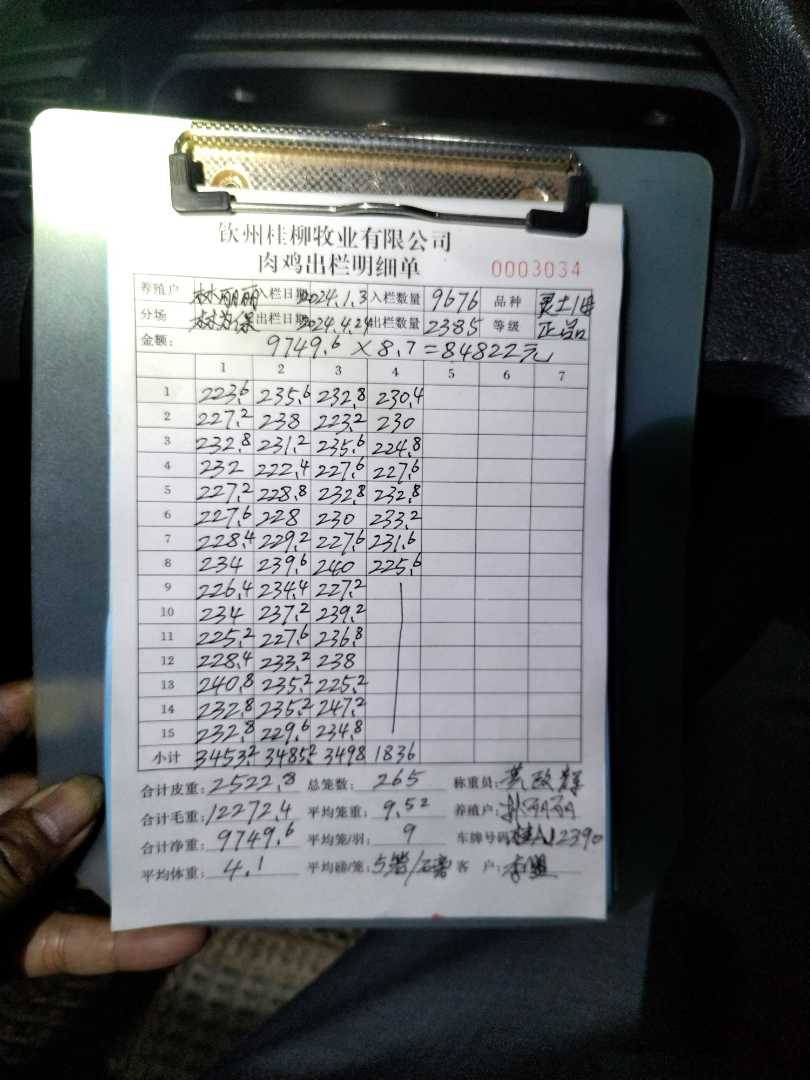 钦州桂柳牧业有限公司
肉鸡出栏明细单 0003034
养殖户 林丽丽 入栏日期 2024.1.3 入栏数量 9676 品种 灵土1母
分场 林为保 出栏日期 2024.4.24 出栏数量 2385 等级 正品
金额: 9749.6 × 8.7 = 84822元
1 2 3 4 5 6 7
1 223.6 235.6 232.8 230.4
2 227.2 238 223.2 230
3 232.8 231.2 235.6 224.8
4 232 222.4 227.6 227.6
5 227.2 228.8 232.8 232.8
6 227.6 228 230 233.2
7 228.4 229.2 227.6 231.6
8 234 239.6 240 225.6
9 226.4 234.4 227.2
10 234 237.2 239.2
11 225.2 227.6 236.8
12 228.4 233.2 238
13 240.8 235.2 225.2
14 232.8 235.2 247.2
15 232.8 229.6 234.8
小计 3453.2 3485.2 3498 1836
合计皮重: 2522.8 总笼数: 265 称重员:
合计毛重: 12272.4 平均笼重: 9.52 养殖户: 林丽丽
合计净重: 9749.6 平均笼/羽: 9 车牌号码: 12390
平均体重: 4.1 平均磅/笼: 5 客 户: 李盟